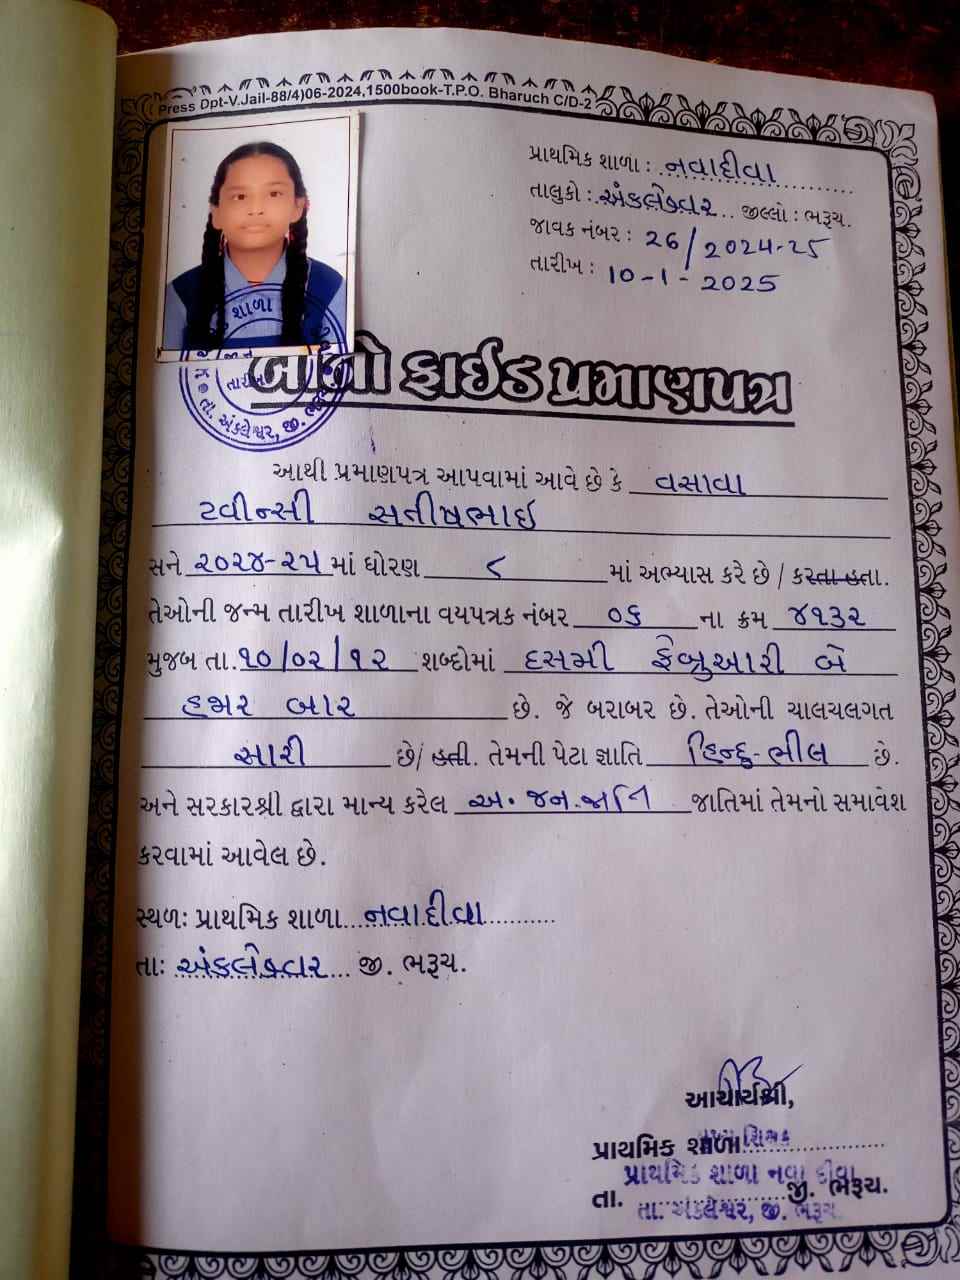 Press Dpt-V.Jail-88/4)06-2024,1500book-T.P.O. Bharuch C/D-2
પ્રાથમિક શાળા : નવાદીવા
તાલુકો : અંકલેશ્વર જીલ્લો : ભરૂચ.
જાવક નંબર : 26/2024-25
તારીખ : 10-1-2025
શાળા
તા. અંકલેશ્વર, જી.
બોનો ફાઈડ પ્રમાણપત્ર
આથી પ્રમાણપત્ર આપવામાં આવે છે કે વસાવા
ટવીન્સી સતીષભાઇ
સને ૨૦૨૪-૨૫ માં ધોરણ ૮ માં અભ્યાસ કરે છે / કરતા હતા.
તેઓની જન્મ તારીખ શાળાના વયપત્રક નંબર ૦૬ ના ક્રમ ૪૧૩૨
મુજબ તા. ૧૦/૦૨/૧૨ શબ્દોમાં દસમી ફેબ્રુઆરી બે
હજાર બાર છે. જે બરાબર છે. તેઓની ચાલચલગત
સારી છે/ હતી. તેમની પેટા જ્ઞાતિ હિન્દુ-ભીલ છે.
અને સરકારશ્રી દ્વારા માન્ય કરેલ અ. જન. જાતિ જાતિમાં તેમનો સમાવેશ
કરવામાં આવેલ છે.
સ્થળઃ પ્રાથમિક શાળા નવાદીવા
તાઃ અંકલેશ્વર જી. ભરૂચ.
આચાર્યશ્રી,
પ્રાથમિક શાળા શિક્ષક
પ્રાથમિક શાળા નવા દીવા
તા. જી. ભરૂચ.
તા. અંકલેશ્વર, જી. ભરૂચ